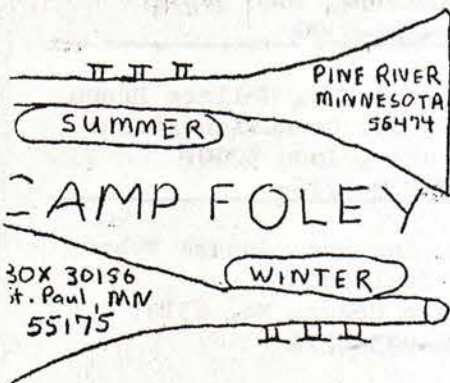 PINE RIVER
MINNESOTA
56474
SUMMER
CAMP FOLEY
WINTER
BOX 30156
St. Paul, MN
55175